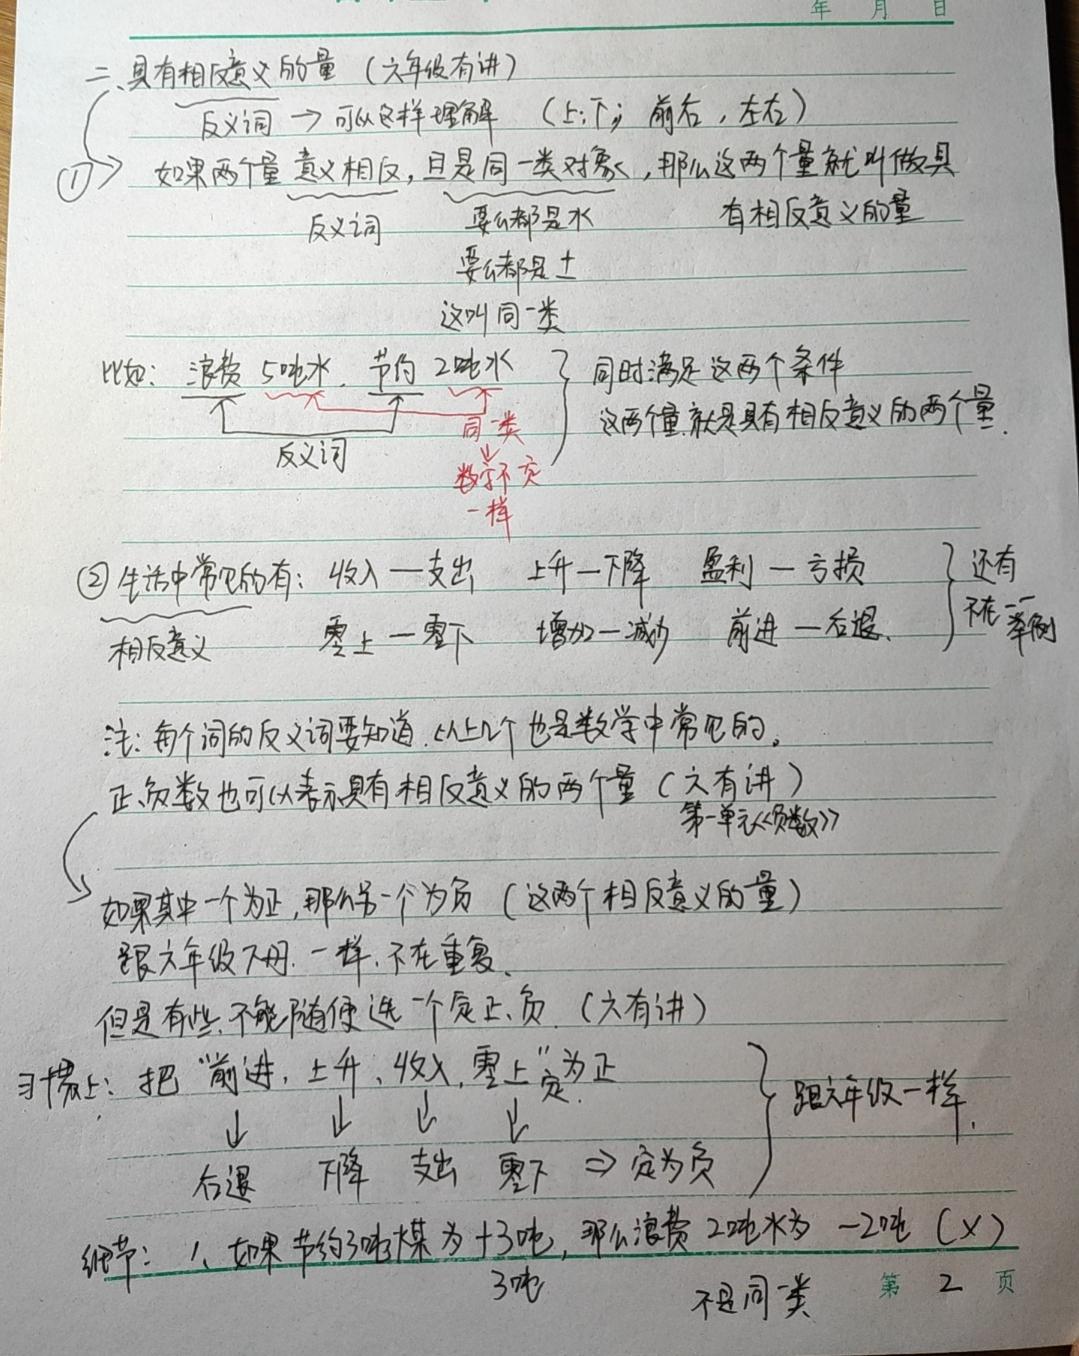 年 月 日
二、具有相反意义的量（六年级有讲）
反义词 → 可以这样理解 （上;下; 前右，左右）
① 如果两个量意义相反，且是同一类对象，那么这两个量就叫做具
反义词 要么都是水 有相反意义的量
要么都是土
这叫同一类
比如：浪费5吨水、节约2吨水 } 同时满足这两个条件
这两个量就是具有相反意义的两个量.
同一类
反义词
数字不一定
一样
② 生活中常见的有：收入—支出 上升—下降 盈利—亏损 } 还有
相反意义 零上—零下 增加—减少 前进—后退. 不在一一举例
注：每个词的反义词要知道.以上几个也是数学中常见的。
正、负数也可以表示具有相反意义的两个量（六有讲）
第一单元《负数》
如果其中一个为正，那么另一个为负（这两个相反意义的量）
跟六年级下册一样.不在重复、
但是有些、不能随便选一个定正、负.（六有讲）
习惯上：把“前进、上升、收入、零上”定为正 } 跟六年级一样.
↓ ↓ ↓ ↓
后退 下降 支出 零下 ⇒ 定为负
细节：1、如果节约3吨煤为+3吨，那么浪费2吨水为 −2吨（×）
3吨
不是同一类
第 2 页